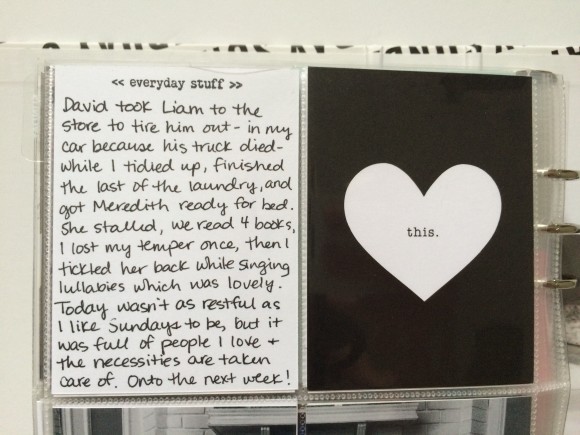 << everyday stuff >>
David took Liam to the
store to tire him out - in my
car because his truck died -
while I tidied up, finished
the last of the laundry, and
got Meredith ready for bed.
She stalled, we read 4 books,
I lost my temper once, then I
tickled her back while singing
lullabies which was lovely.
Today wasn't as restful as
I like Sundays to be, but it
was full of people I love +
the necessities are taken
care of. Onto the next week!
this.